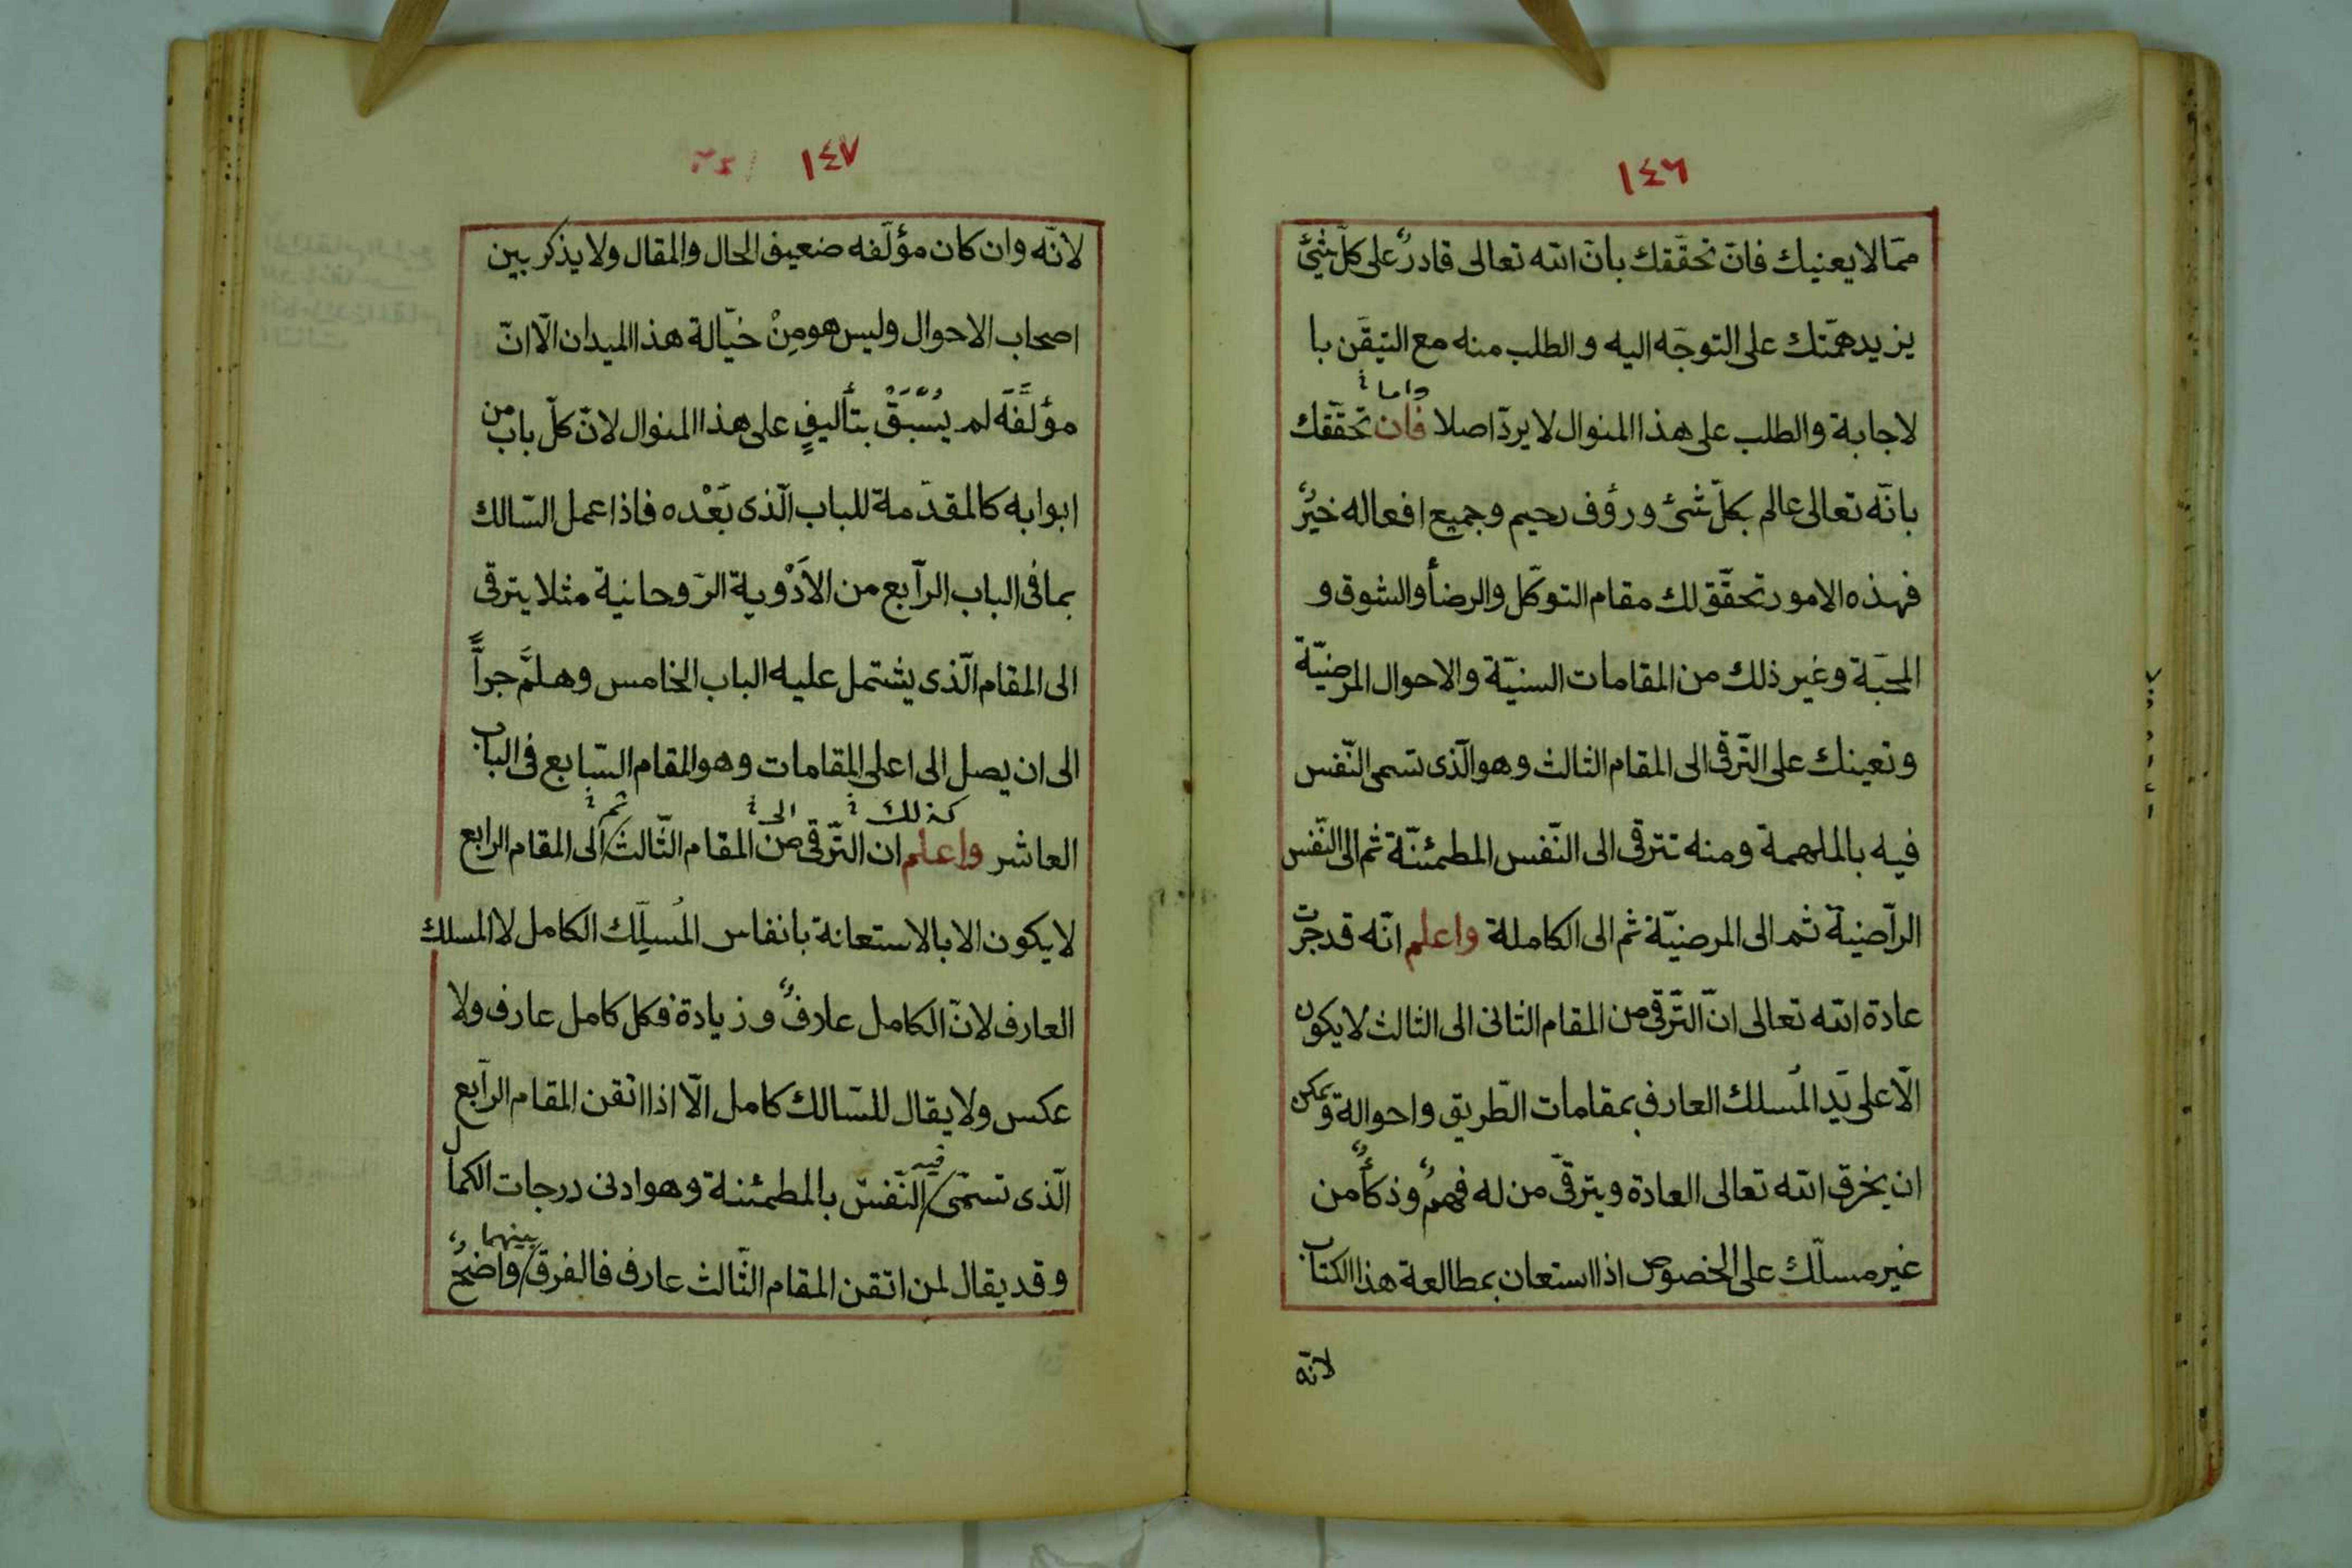 ١٤٦
ممّا لا يعنيك فانّ تحقّقك بانّ الله تعالى قادرٌ على كلّ شئ
يزيد همّتك على التوجّه اليه والطلب منه مع التيقّن با
واما
لاجابة والطلب على هذا المنوال لا يردّ اصلا فان تحقّقك
بانّه تعالى عالم بكلّ شئ ورؤف رحيم وجميع افعاله خيرٌ
فهذه الامور تحقّق لك مقام التوكّل والرضأ والشوق و
المحبّة وغير ذلك من المقامات السنيّة والاحوال المرضيّة
وتعينك على التّرقى الى المقام الثالث وهو الّذى تسمى النّفس
فيه بالملهمة ومنه تترقى الى النّفس المطمئنّة ثم الى النّفس
الرّاضيّة ثم الى المرضيّة ثم الى الكاملة واعلم انّه قد جرت
عادة الله تعالى انّ التّرقى من المقام الثانى الى الثالث لا يكون
الّا على يَد المُسلك العارف بمقامات الطّريق واحواله ويمكن
ان يخرق الله تعالى العادة ويترقّى من له فهمٌ وذكأٌ من
غير مسلّك على الخصوص اذا استعان بمطالعة هذا الكتاب
لانّه
١٤٧
لانّه وان كان مؤلّفه ضعيف الحال والمقال ولا يذكر بين
اصحاب الاحوال وليس هو مِنْ خيّالة هذا الميدان الّا انّ
مؤلَّفَه لم يُسْبَقْ بتأليفٍ على هذا المنوال لانّ كلّ باب من
ابوابه كالمقدّمة للباب الّذى بَعْده فاذا عمل السّالك
بما فى الباب الرّابع من الاَدْوية الرّوحانية مثلا يترقى
الى المقام الّذى يشتمل عليه الباب الخامس وهلمَّ جراًّ
الى ان يصل الى اعلى المقامات وهو المقام السّابع فى الباب
كذلك الى ثم
العاشر واعلم ان التّرقى من المقام الثّالث الى المقام الرابع
لا يكون الا بالاستعانة بانفاس المُسلّك الكامل لا المسلك
العارف لانّ الكامل عارفٌ وزيادة فكل كامل عارف ولا
عكس ولا يقال للسّالك كامل الّا اذا اتقن المقام الرّابع
فيه
الّذى تسمّى النّفس بالمطمئنة وهو ادنى درجات الكمال
بينهما
وقد يقال لمن اتقن المقام الثّالث عارف فالفرق واضحٌ